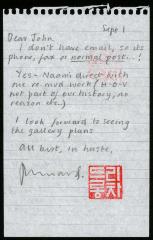 Sept 1
Dear John
I don't have email, so its
phone, fax or normal post...!
Yes - Naomi direct with
me re mud work (H-O-V
not part of our history, no
reason etc.)
I look forward to seeing
the gallery plans
all best, in haste,